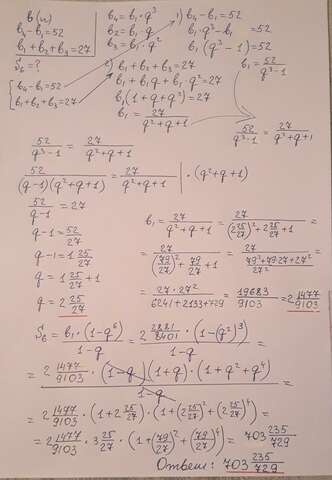 b(n)
b₄-b₁=52
b₁+b₂+b₃=27
S₆=?
{ b₄-b₁=52
b₁+b₂+b₃=27
b₄=b₁·q³
b₂=b₁·q
b₃=b₁·q²
1) b₄-b₁=52
b₁·q³-b₁=52
b₁(q³-1)=52
b₁=52/(q³-1)
2) b₁+b₂+b₃=27
b₁+b₁q+b₁·q²=27
b₁(1+q+q²)=27
b₁=27/(q²+q+1)
52/(q³-1)=27/(q²+q+1)
52/(q³-1)=27/(q²+q+1)
52/((q-1)(q²+q+1))=27/(q²+q+1) | ·(q²+q+1)
52/(q-1)=27
q-1=52/27
q-1=1 25/27
q=1 25/27+1
q=2 25/27
b₁=27/(q²+q+1)=27/((2 25/27)²+2 25/27+1)=
=27/((79/27)²+79/27+1)=27/((79²+79·27+27²)/27²)=
=27·27²/(6241+2133+729)=19683/9103=2 1477/9103
S₆=b₁·(1-q⁶)/(1-q)=2 2881/8401·(1-(q²)³)/(1-q)=
=2 1477/9103·(1-q)(1+q)·(1+q²+q⁴)/(1-q)=
=2 1477/9103·(1+2 25/27)·(1+(2 25/27)²+(2 25/27)⁴)=
=2 1477/9103·3 25/27·(1+(79/27)²+(79/27)⁴)=703 235/729
Ответ: 703 235/729